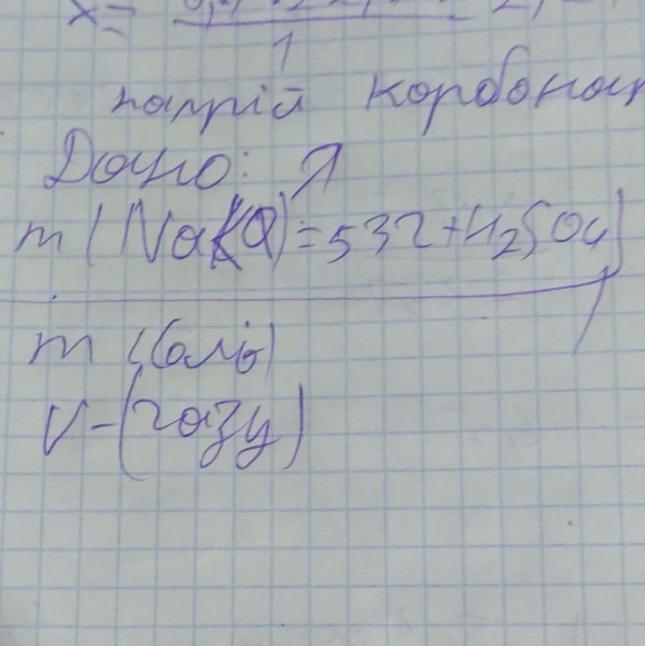 x=
1
натрій карбонат
Дано:
m (Na = 53г + H2SO4)
m (солі)
V - (газу)